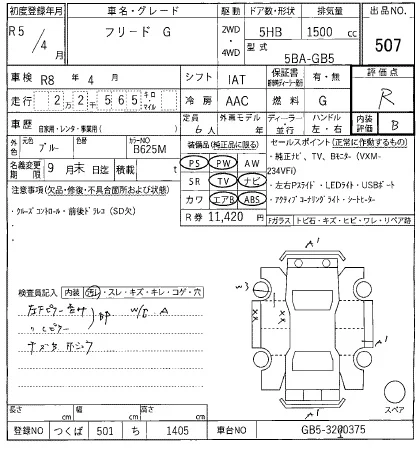 初度登録年月 車名・グレード 駆動 ドア数・形状 排気量 出品NO.
R5 / 4月 フリード G 2WD ・ 4WD 5HB 1500 cc 507
型式 5BA-GB5
車検 R8年 4月 シフト IAT 保証書 有・無 評価点
走行 2万2千565 キロ・マイル 冷房 AAC 燃料 G R
車歴 自家用・レンタ・事業用( ) 定員 6人 外車モデル 年 ディーラー・並行 ハンドル 左・右 内装評価 B
外色 元色 ブルー 色替 カラーNO B625M
名義変更期限 9月末日迄 積載 t
装備品(純正品に限る)
PS PW AW
SR TV ナビ
カワ エアB ABS
R券 11,420円
セールスポイント(正常に作動するもの)
・純正ナビ、TV、Bモニター(VXM-234VFi)
・左右Pスライド・LEDライト・USBポート
・アクティブコーナリングライト・シートヒーター
注意事項(欠品・修復・不具合箇所および状態)
・クルーズコントロール・前後ドラレコ(SD欠)
Fガラス トビ石・キズ・ヒビ・ワレ・リペア跡
検査員記入 内装 汚れ・スレ・キズ・キレ・コゲ・穴
A'
W3
XX
XX
A'
A'
スペア
長さ cm 幅 cm 高さ cm
登録NO つくば 501 ち 1405 車台NO GB5-3200375